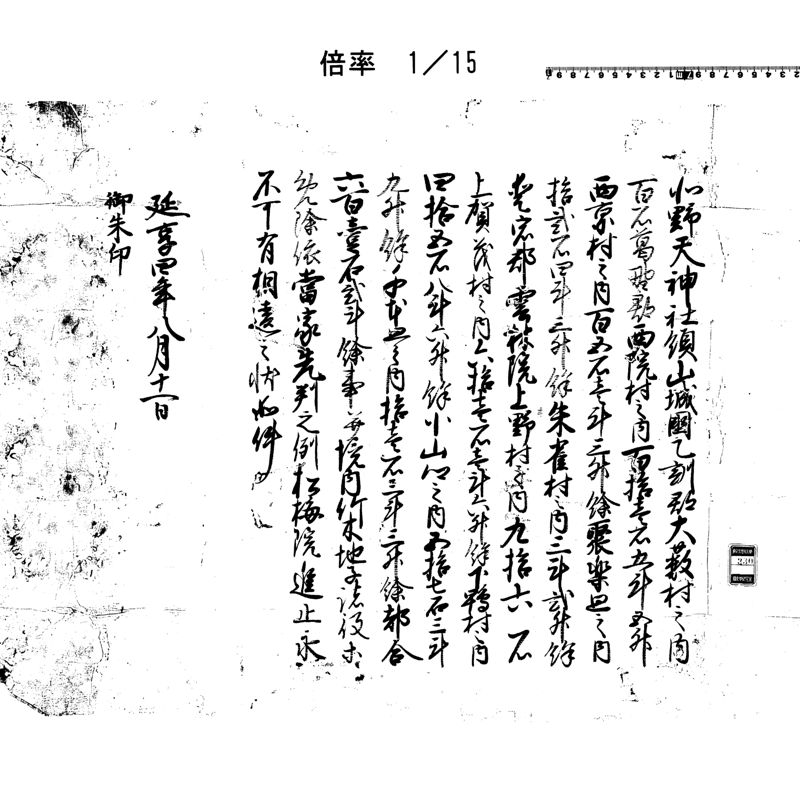 倍率 1/15
北野天神社領山城國乙訓郡大薮村之内
百石葛野郡西院村之内百拾壹石五斗五升
西京村之内百五石壹斗三升餘聚楽廻之内
拾貳石四斗三升餘朱雀村之内三斗貳升餘
愛宕郡雲林院上野村之内九拾六石
上賀茂村之内六拾壹石壹斗六升餘下鴨村之内
四拾五石八斗六升餘小山郷之内五拾七石三斗
九升餘千本廻之内拾壹石三斗三升餘都合
六百壹石貳斗餘事并境内竹木地子諸役等
免除依當家先判之例松梅院進止永
不可有相違之状如件
延享四年八月十一日
御朱印